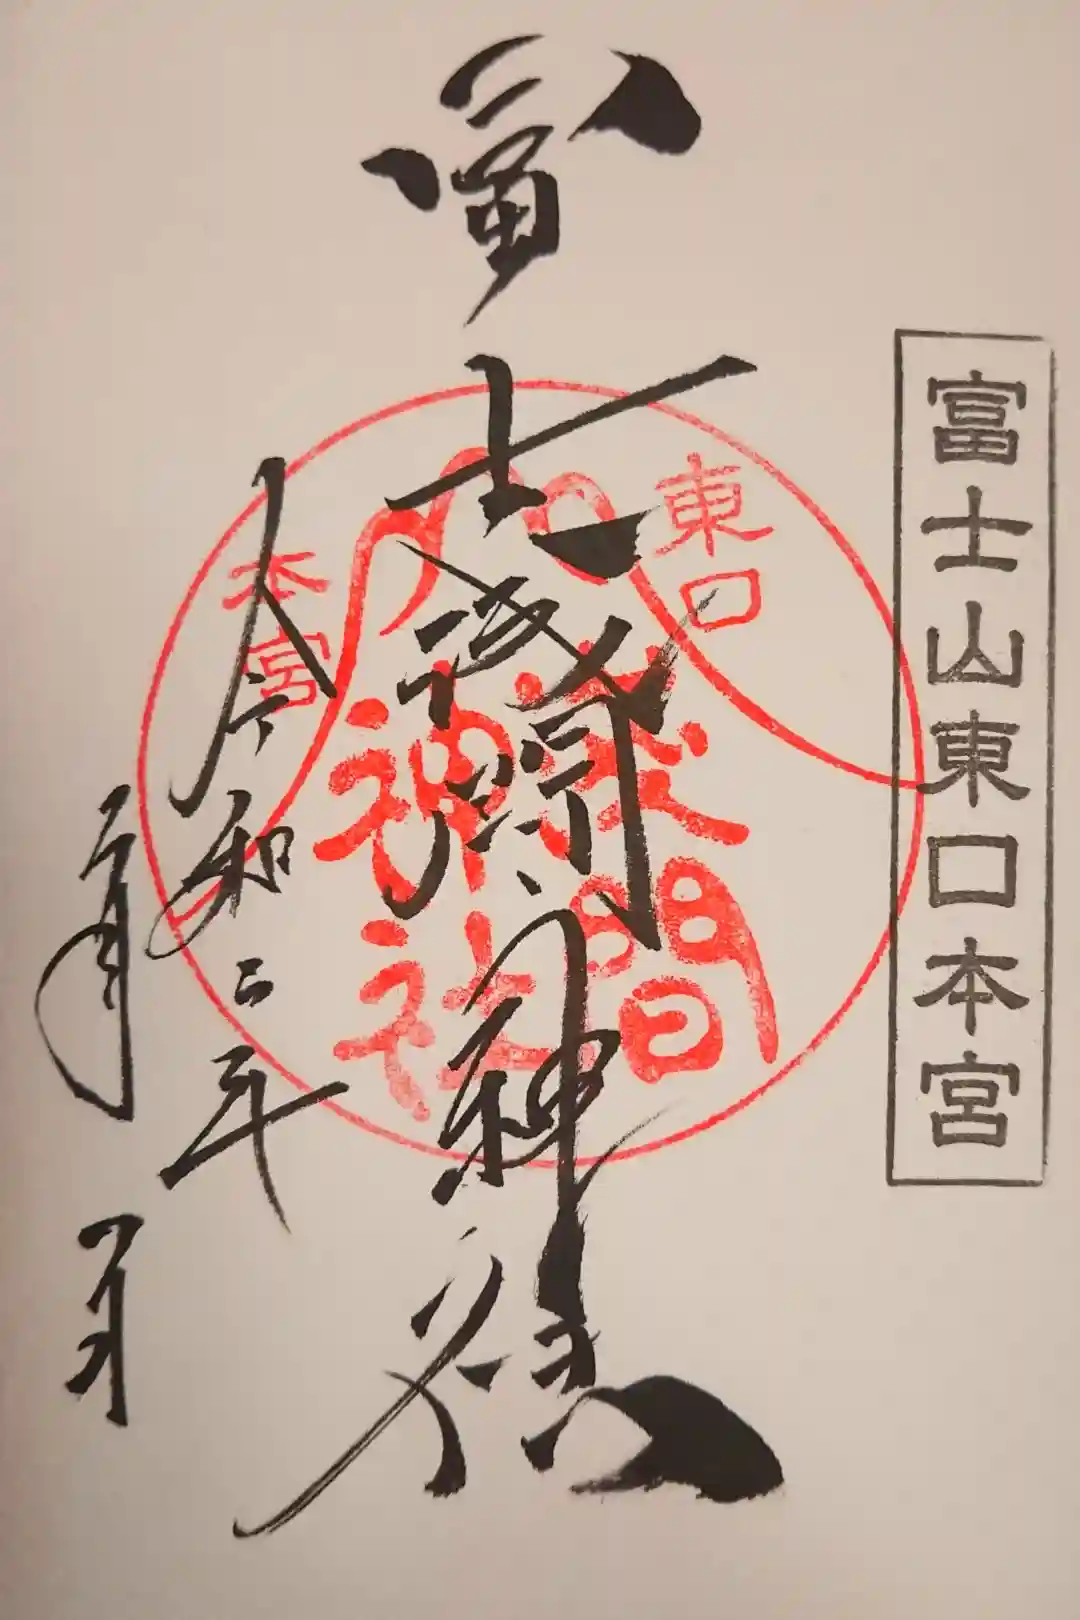 富士山東口本宮
富士浅間神
東口
本宮
浅間
神社
令和二年